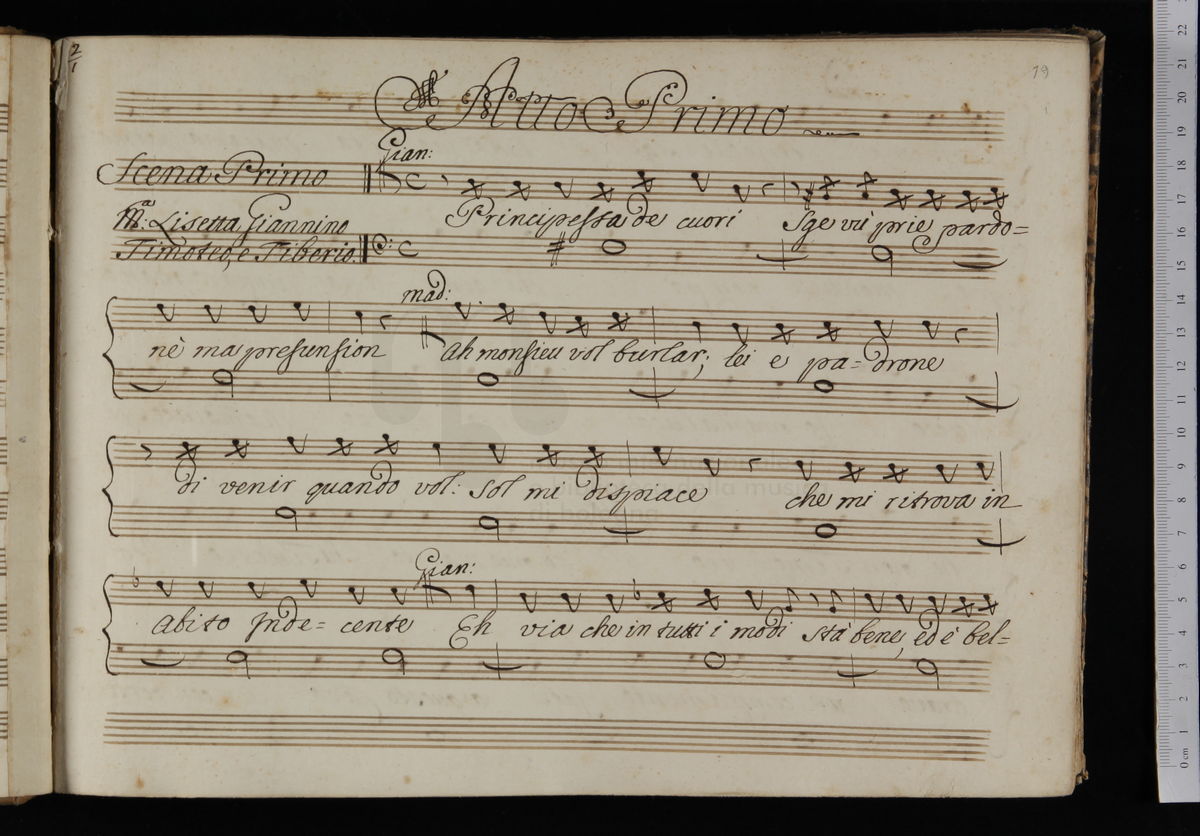 2/1
19
Atto Primo
Gian:
Scena Primo
M.ª Lisetta Giannino
Timoteo, e Tiberio.
Principessa de cuori prie pardo=
mad:
nè ma presunsion Ah monsieu vol burlar; lei e pa=drone
di venir quando vol: sol mi dispiace che mi ritrova in
Gian:
Abito Inde=cente Eh via che in tutti i modi stà bene, ed è bel=
22
21
20
19
18
17
16
15
14
13
12
11
10
9
8
7
6
5
4
3
2
1
0 cm